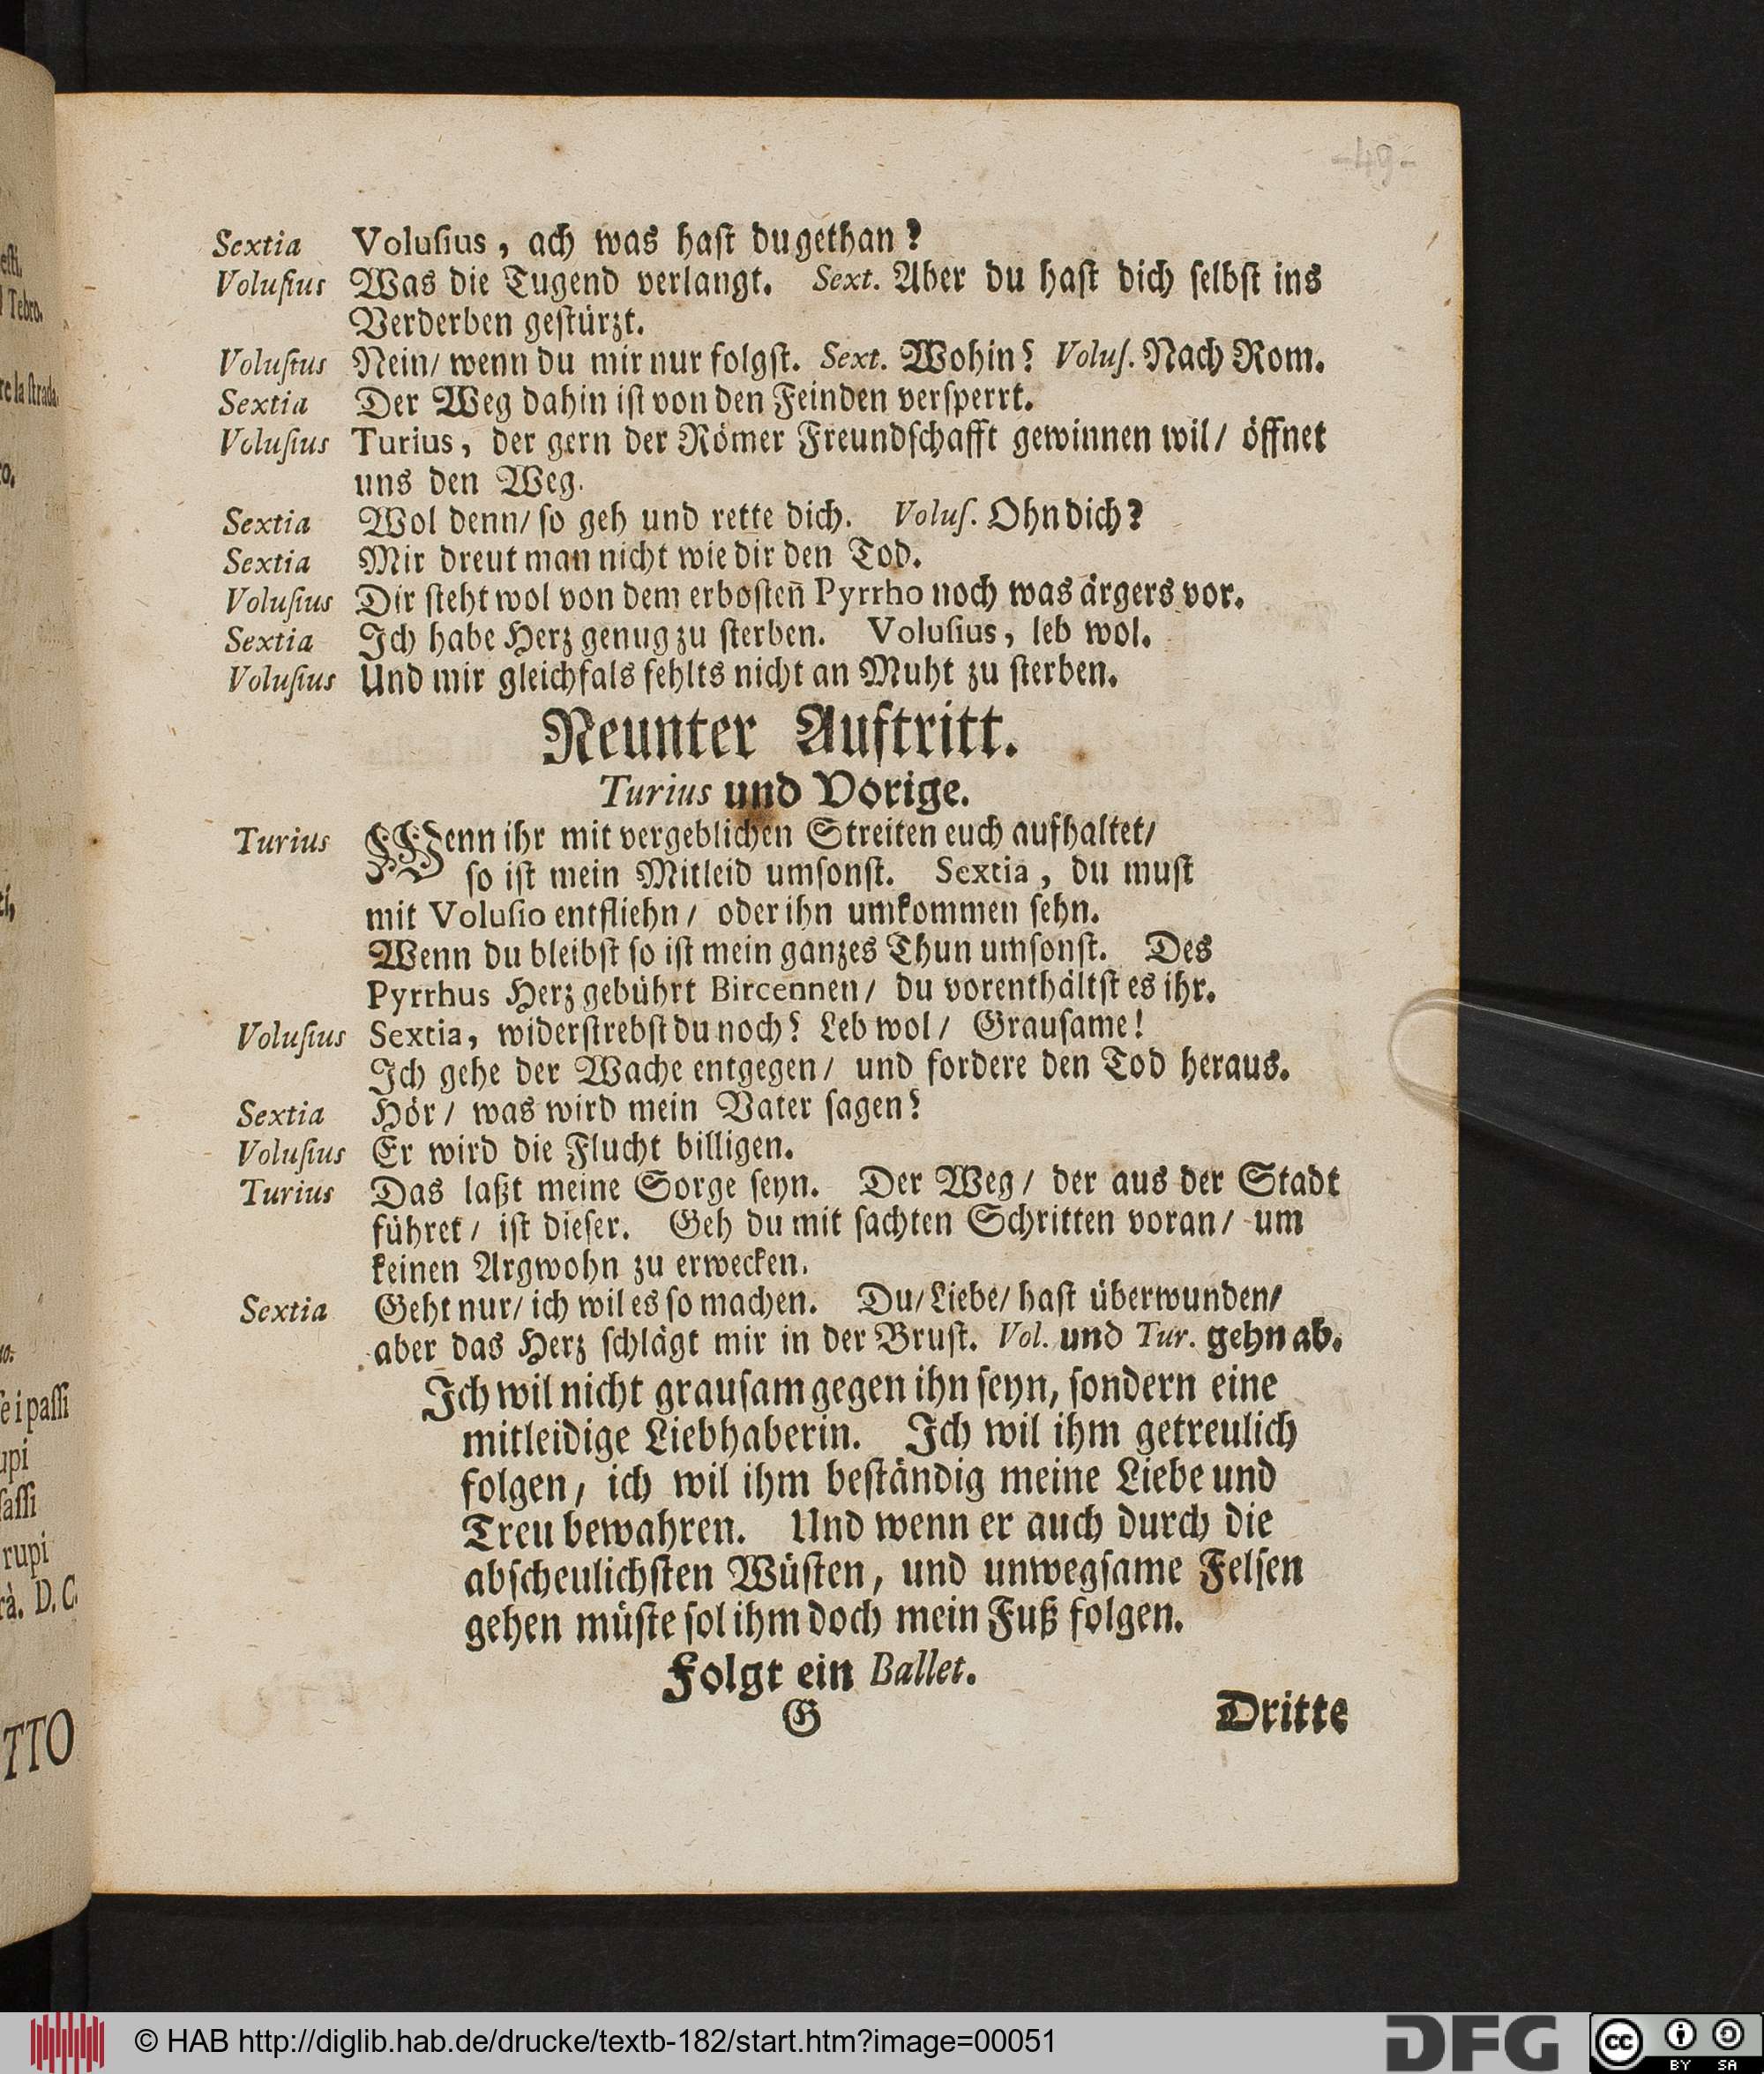 -49-
Sextia Voluſius, ach was haſt du gethan?
Voluſius Was die Tugend verlangt. Sext. Aber du haſt dich ſelbſt ins
Verderben geſtürzt.
Voluſius Nein/ wenn du mir nur folgſt. Sext. Wohin? Voluſ. Nach Rom.
Sextia Der Weg dahin iſt von den Feinden verſperrt.
Voluſius Turius, der gern der Römer Freundſchafft gewinnen wil/ öffnet
uns den Weg.
Sextia Wol denn/ ſo geh und rette dich. Voluſ. Ohn dich?
Sextia Mir dreut man nicht wie dir den Tod.
Voluſius Dir ſteht wol von dem erboſten̄ Pyrrho noch was ärgers vor.
Sextia Ich habe Herz genug zu ſterben. Voluſius, leb wol.
Voluſius Und mir gleichfals fehlts nicht an Muht zu ſterben.
Neunter Auftritt.
Turius und Vorige.
Turius Wenn ihr mit vergeblichen Streiten euch aufhaltet/
ſo iſt mein Mitleid umſonſt. Sextia, du muſt
mit Voluſio entfliehn/ oder ihn umkommen ſehn.
Wenn du bleibſt ſo iſt mein ganzes Thun umſonſt. Des
Pyrrhus Herz gebührt Bircennen/ du vorenthältſt es ihr.
Voluſius Sextia, widerſtrebſt du noch? Leb wol/ Grauſame!
Ich gehe der Wache entgegen/ und fordere den Tod heraus.
Sextia Hör/ was wird mein Vater ſagen?
Voluſius Er wird die Flucht billigen.
Turius Das laßt meine Sorge ſeyn. Der Weg/ der aus der Stadt
führet/ iſt dieſer. Geh du mit ſachten Schritten voran/ um
keinen Argwohn zu erwecken.
Sextia Geht nur/ ich wil es ſo machen. Du/ Liebe/ haſt überwunden/
aber das Herz ſchlägt mir in der Bruſt. Vol. und Tur. gehn ab.
Ich wil nicht grauſam gegen ihn ſeyn, ſondern eine
mitleidige Liebhaberin. Ich wil ihm getreulich
folgen, ich wil ihm beſtändig meine Liebe und
Treu bewahren. Und wenn er auch durch die
abſcheulichſten Wüſten, und unwegſame Felſen
gehen müſte ſol ihm doch mein Fuß folgen.
Folgt ein Ballet.
G Dritte
eſti,
Tebro.
re la ſtrada.
ſe i paſſi
upi
ſaſſi
rupi
rà. D. C.
TTO
© HAB http://diglib.hab.de/drucke/textb-182/start.htm?image=00051
DFG
cc BY SA